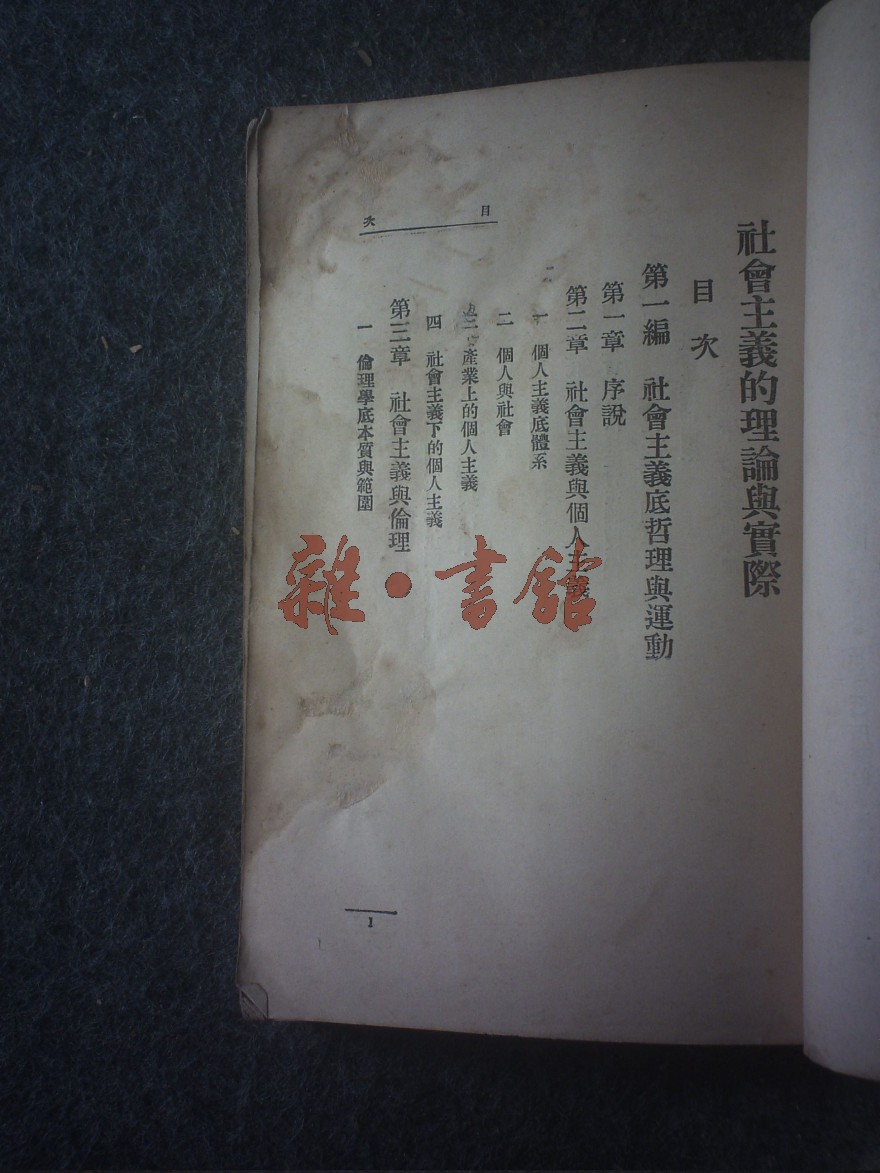 社會主義的理論與實際
目次
第一編 社會主義底哲理與運動
第一章 序說
第二章 社會主義與個人主義
一 個人主義底體系
二 個人與社會
三 產業上的個人主義
四 社會主義下的個人主義
第三章 社會主義與倫理
一 倫理學底本質與範圍
目次
1
雜·書館